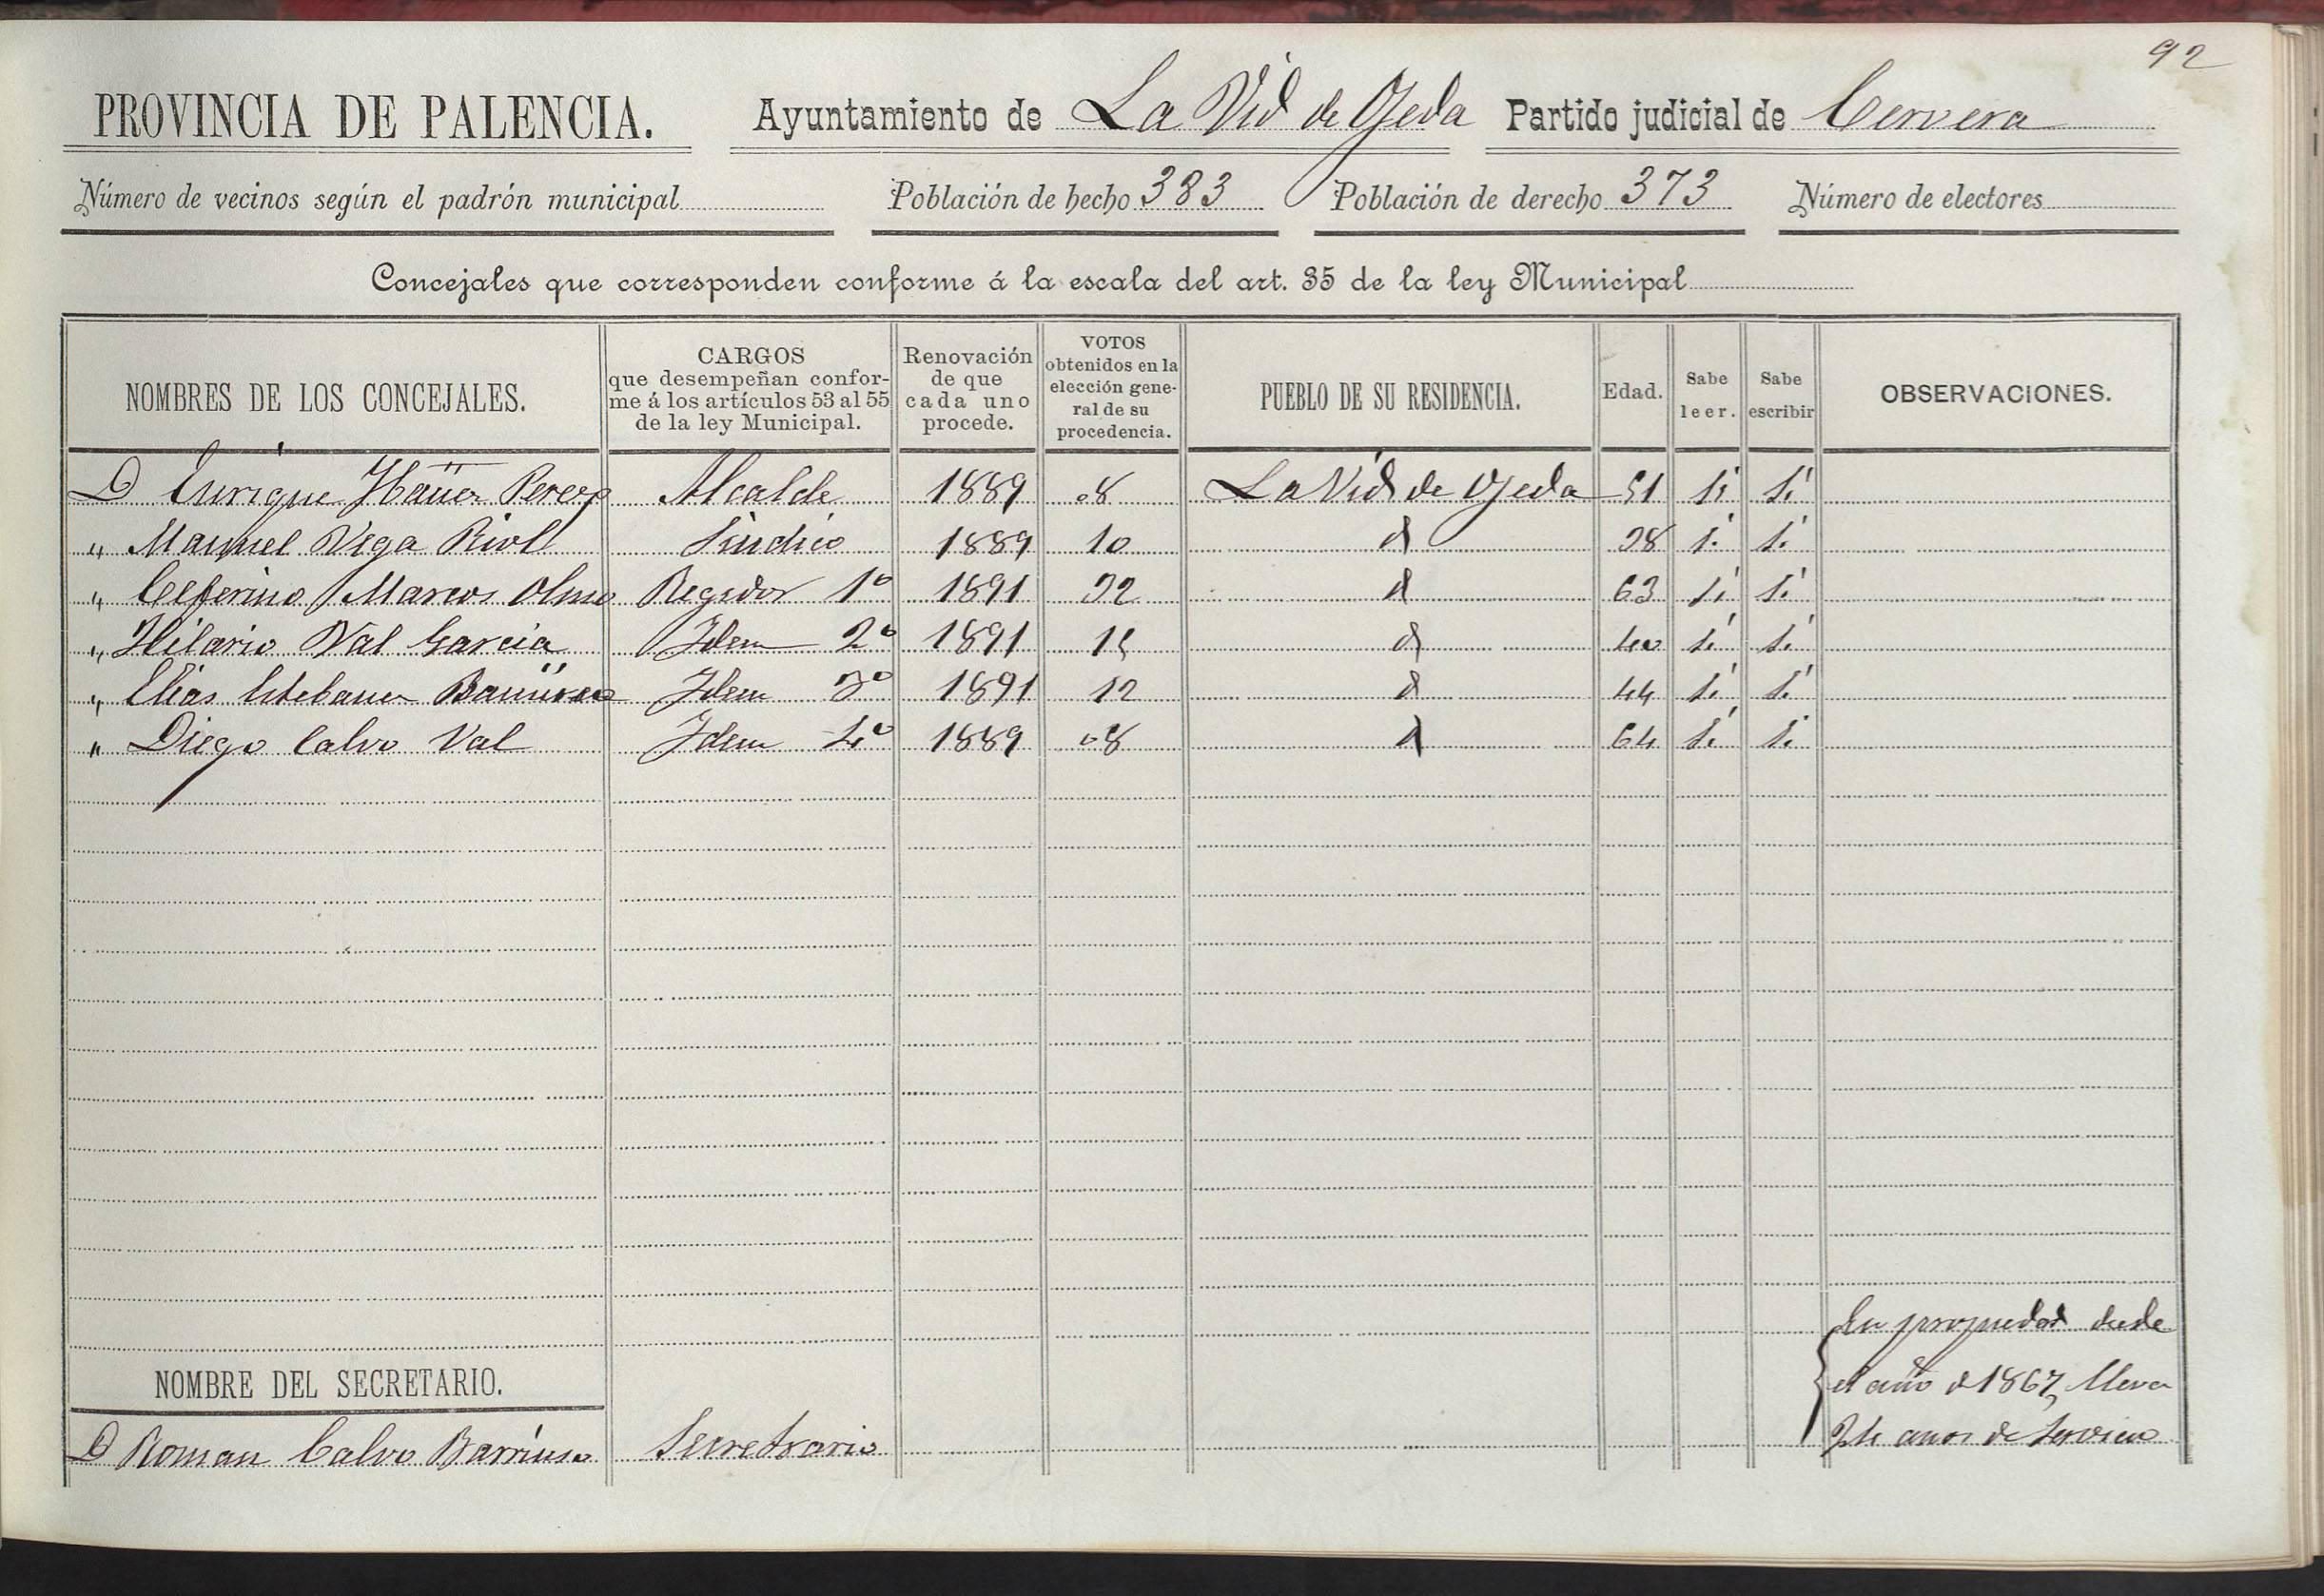 92
PROVINCIA DE PALENCIA. Ayuntamiento de La Vid de Ojeda Partido judicial de Cervera
Número de vecinos según el padrón municipal Población de hecho 383 Población de derecho 373 Número de electores
Concejales que corresponden conforme á la escala del art. 35 de la ley Municipal
NOMBRES DE LOS CONCEJALES. CARGOS que desempeñan conforme á los artículos 53 al 55 de la ley Municipal. Renovación de que cada uno procede. VOTOS obtenidos en la elección general de su procedencia. PUEBLO DE SU RESIDENCIA. Edad. Sabe leer. Sabe escribir OBSERVACIONES.
D Enrique Ibañez Perez Alcalde 1889 08 La Vid de Ojeda 51 Si Si
" Manuel Vega Riol Sindico 1889 10 d 38 Si Si
" Ceferino Marcos Olmo Regidor 1º 1891 22 d 63 Si Si
" Hilario Val Garcia Idem 2º 1891 15 d 40 Si Si
" Elias Estebanez Idem 3º 1891 12 d 44 Si Si
" Diego Calvo Val Idem 4º 1889 08 d 64 Si Si
En propiedad desde
el año d 1867, lleva
24 años de servicio
NOMBRE DEL SECRETARIO.
D Roman Calvo Barriuso Secretrario